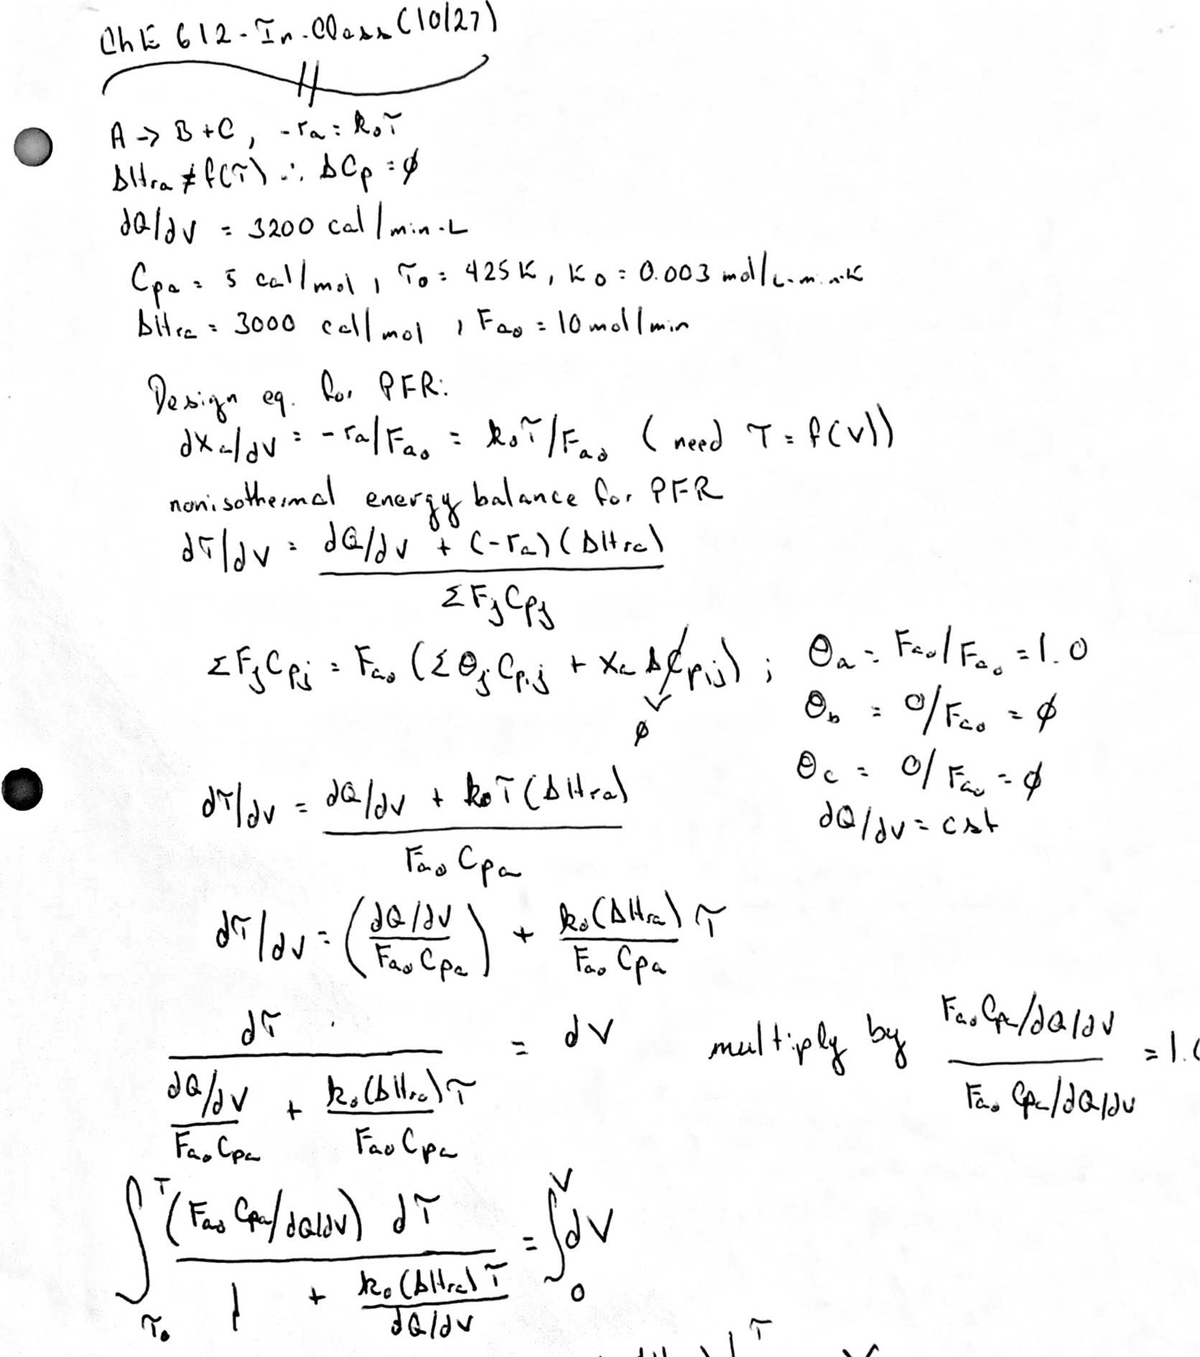 ChE 612 - In-Class (10/27)
A -> B + C , -ra = k₀T
ΔHra ≠ f(T) ∴ ΔCp = ∅
dQ/dV = 3200 cal/min·L
Cpa = 5 cal/mol , T₀ = 425 K , k₀ = 0.003 mol/L·min·K
ΔHra = 3000 cal/mol , Fa₀ = 10 mol/min
Design eq. for PFR:
dXa/dV = -ra/Fa₀ = k₀T/Fa₀ ( need T = f(V))
nonisothermal energy balance for PFR
dT/dV = dQ/dV + (-ra)(ΔHra)
ΣFjCpj
ΣFjCpj = Fa₀ (ΣθjCpj + Xa ΔCpij) ; θa = Fa₀/Fa₀ = 1.0
∅
θb = 0/Fa₀ = ∅
θc = 0/Fa₀ = ∅
dQ/dV = cst
dT/dV = dQ/dV + k₀T(ΔHra)
Fa₀ Cpa
dT/dV = (dQ/dV / Fa₀ Cpa) + k₀(ΔHra) / Fa₀ Cpa T
dT / (dQ/dV / Fa₀ Cpa + k₀(ΔHra)T / Fa₀ Cpa) = dV multiply by Fa₀Cpa/dQ/dV / Fa₀ Cpa/dQ/dV = 1.
∫ T₀ T (Fa₀ Cpa/dQ/dV) dT / (1 + k₀(ΔHra)T / dQ/dV) = ∫ 0 V dV